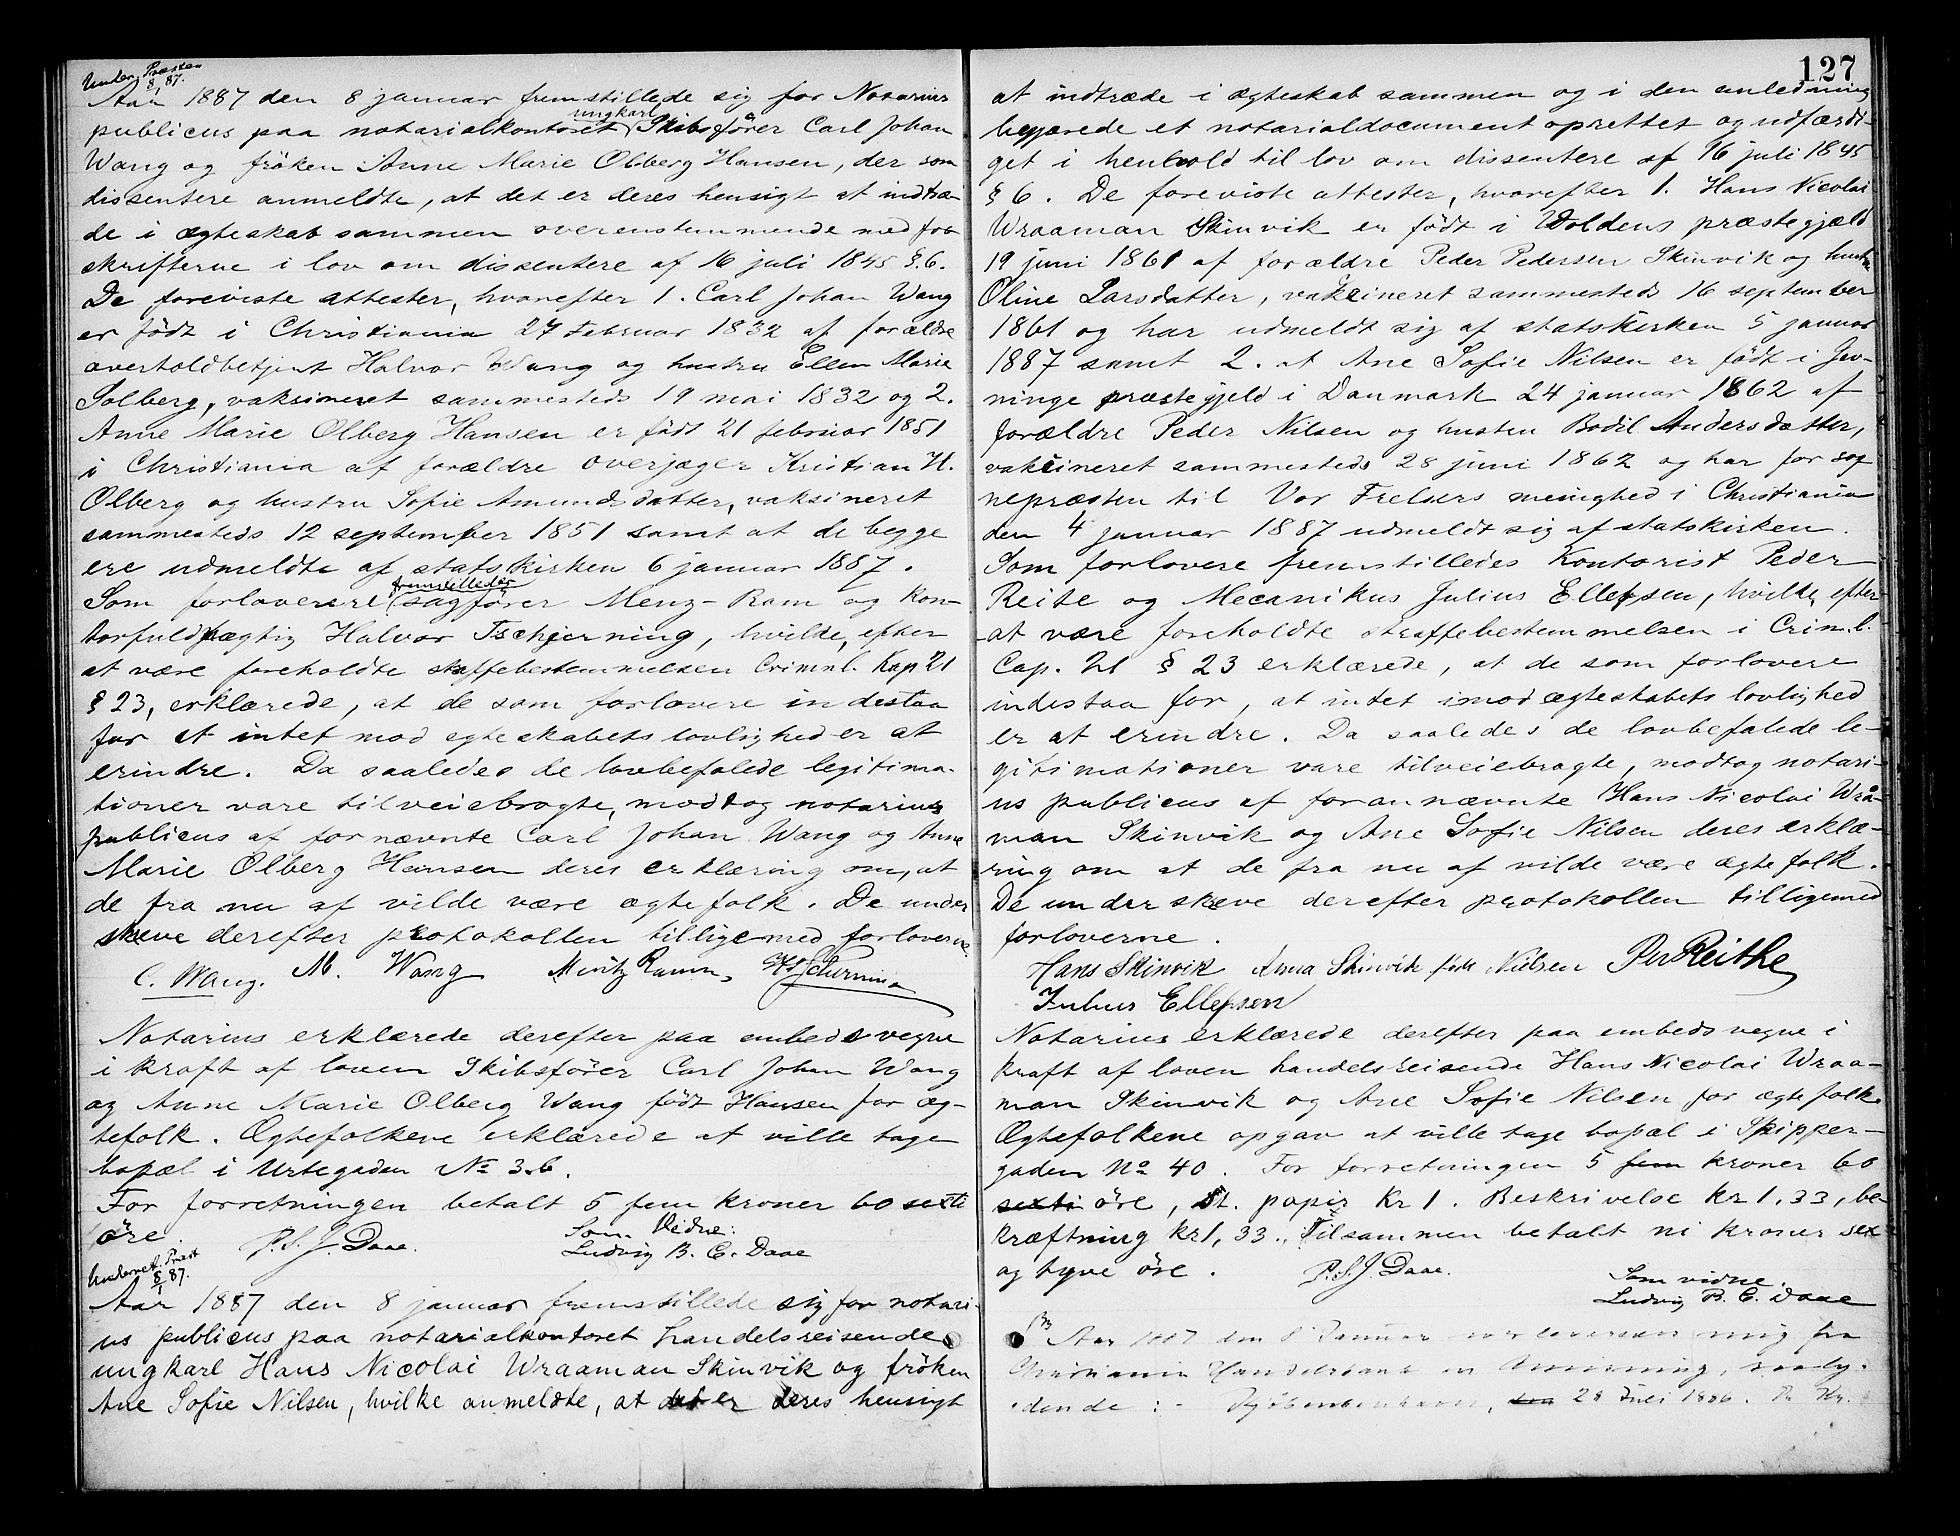 Under. Præsten
8/1 87.
Aar 1887 den 8 januar fremstillede sig for Notarius
ungkarl
publicus paa notarialkontoret Skibsfører Carl Johan
Wang og fröken Anne Marie Olberg Hansen, der som
dissentere anmeldte, at det er deres hensigt at indtræ-
de i ægteskab sammen overensstemmende med for
skrifterne i lov om dissentere af 16 juli 1845 §.6.
De foreviste attester, hvorefter 1. Carl Johan Wang
er födt i Christiania 27 Februar 1832 af forældre
overtoldbetjent Halvor Wang og hustru Ellen Marie
Solberg, vaksineret sammesteds 19 mai 1832 og 2.
Anne Marie Olberg Hansen er födt 21 februar 1851
i Christiania af forældre overjæger Kristian H.
Olberg og hustru Sofie Amundsdatter, vaksineret
sammesteds 12 september 1851 samt at de begge
ere udmeldte af statskirken 6 januar 1887.
fremstilledes
Som forlovere sagfører Menz-Ram og kon-
torfuldmægtig Halvor Tschjerning, hvilke, efter
at være foreholdte straffebestemmelsen Criminl. Kap 21
§ 23, erklærede, at de som forlovere indestaa
for at intet mod egteskabets lovlighed er at
erindre. Da saaledes de lovbefalede legitima-
tioner vare tilveiebragte, modtog notarius
publicus af fornævnte Carl Johan Wang og Anne
Marie Olberg Hansen deres erklæring om, at
de fra nu af vilde være ægtefolk. De under
skreve derefter protokollen tilligemed forloverne
C. Wang. M. Wang Moritz Ramm,
Notarius erklærede derefter paa embeds vegne
i kraft af loven Skibsförer Carl Johan Wang
og Anne Marie Olberg Wang födt Hansen for æg-
tefolk. Ægtefolkene erklærede at ville tage
bopæl i Urtegaden No 36.
For forretningen betalt 5 fem kroner 60 sexti
øre.
P. S. J. Daae. Som Vidne:
Ludvig B. C. Daae
Underret. Præst
8/1 87.
Aar 1887 den 8 januar fremstillede sig for notari-
us publicus paa notarialkontoret handelsreisende
ungkarl Hans Nicolai Wraaman Skinvik og fröken
Ane Sofie Nilsen, hvilke anmeldte, at det er deres hensigt
127
at indtræde i ægteskab sammen og i den anledning
begjærede et notarialdocument oprettet og udfærdi-
get i henhold til lov om dissentere af 16 juli 1845
§ 6. De foreviste attester, hvorefter 1. Hans Nicolai
Wraaman Skinvik er födt i Voldens præstegjæld
19 juni 1861 af forældre Peder Pedersen Skinvik og hustru
Oline Larsdatter, vakcineret sammesteds 16 september
1861 og har udmeldt sig af statskirken 5 januar
1887 samt 2. at Ane Sofie Nilsen er födt i Jev-
ninge præstegjeld i Danmark 24 januar 1862 af
forældre Peder Nilsen og hustru Bodil Andersdatter,
vakcineret sammesteds 28 juni 1862 og har for sog
nepræsten til Vor Frelsers menighed i Christiania
den 4 januar 1887 udmeldt sig af statskirken.
Som forlovere fremstilledes Kontorist Peder
Reite og Mecanikus Julius Ellefsen, hvilke, efter
at være foreholdte straffebestemmelsen i Crim.l.
Cap. 21 § 23 erklærede, at de som forlovere
indestaa for, at intet imod ægteskabets lovlighed
er at erindre. Da saaledes de lovbefalede le-
gitimationer vare tilveiebragte, modtog notari-
us publicus af forannævnte Hans Nicolai Wraa-
man Skinvik og Ane Sofie Nilsen deres erklæ-
ring om at de fra nu af vilde være ægtefolk.
De underskreve derefter protokollen tilligemed
forloverne.
Hans Skinvik Anna Skinvik født Nielsen Pr Reithe
Julius Ellefsen
Notarius erklærede derefter paa embeds vegne i
kraft af loven handelsreisende Hans Nicolai Wraa-
man Skinvik og Ane Sofie Nilsen for ægtefolk.
Ægtefolkene opgav at ville tage bopæl i Skipper-
gaden No 40. For forretningen 5 fem kroner 60
sexti øre, St. papir Kr 1. Beskrivelse kr 1,33, be
kræftning kr 1,33. Tilsammen betalt ni kroner sex
og tyve öre.
P. S. J. Daae. Som vidne.
Ludvig B. C. Daae
Aar 1887 den 8 Januar mig fra
Christiania Handelsbank en Anmodning, saaly-
dende: - Kjøbenhavn, den 28 Juli 1886. Pr Kr.